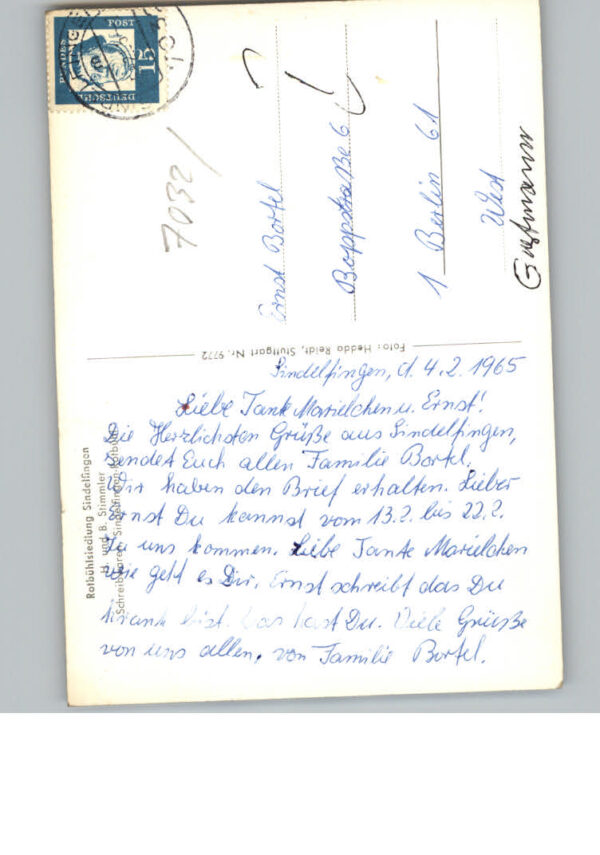 Sindelfingen, d. 4.2.1965
Liebe Tante Marielchen u. Ernst!
Die Herzlichsten Grüße aus Sindelfingen,
sendet Euch allen Familie Bortel.
Wir haben den Brief erhalten. Lieber
Ernst Du kannst vom 13.2. bis 22.2.
Zu uns kommen. Liebe Tante Marielchen
wie geht es Dir, Ernst schreibt das Du
krank bist. Was hast Du. Viele Grüße
von uns allen, von Familie Bortel.
Ernst Bortel
Boppstraße 6
1 Berlin 61
West
7032/
Foto: Hedda Reidt, Stuttgart Nr. 9772
Rotbühlsiedlung Sindelfingen
H. und B. Stimmler
Schreibwaren Sindelfingen-Rotbühl
DEUTSCHE
BUNDES
POST
15